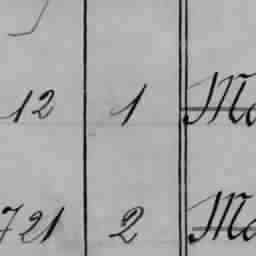 12 1 Ma
721 2 Ma